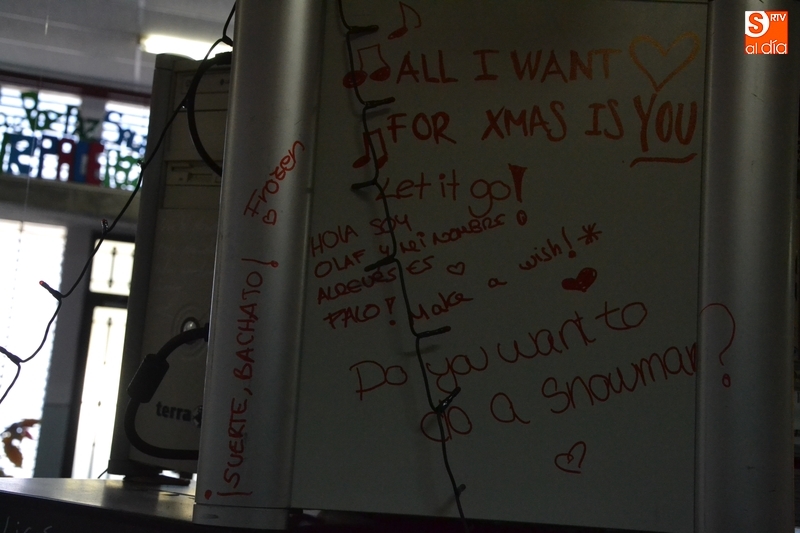 S RTV
al día
ALL I WANT
FOR XMAS IS YOU
Let it go!
HOLA SOY
OLAF Y MI NOMBRE
AL REVÉS ES
FALO!
Make a wish!
Do you want to
do a snowman?
Frozen
¡SUERTE, BACHATO!
terra